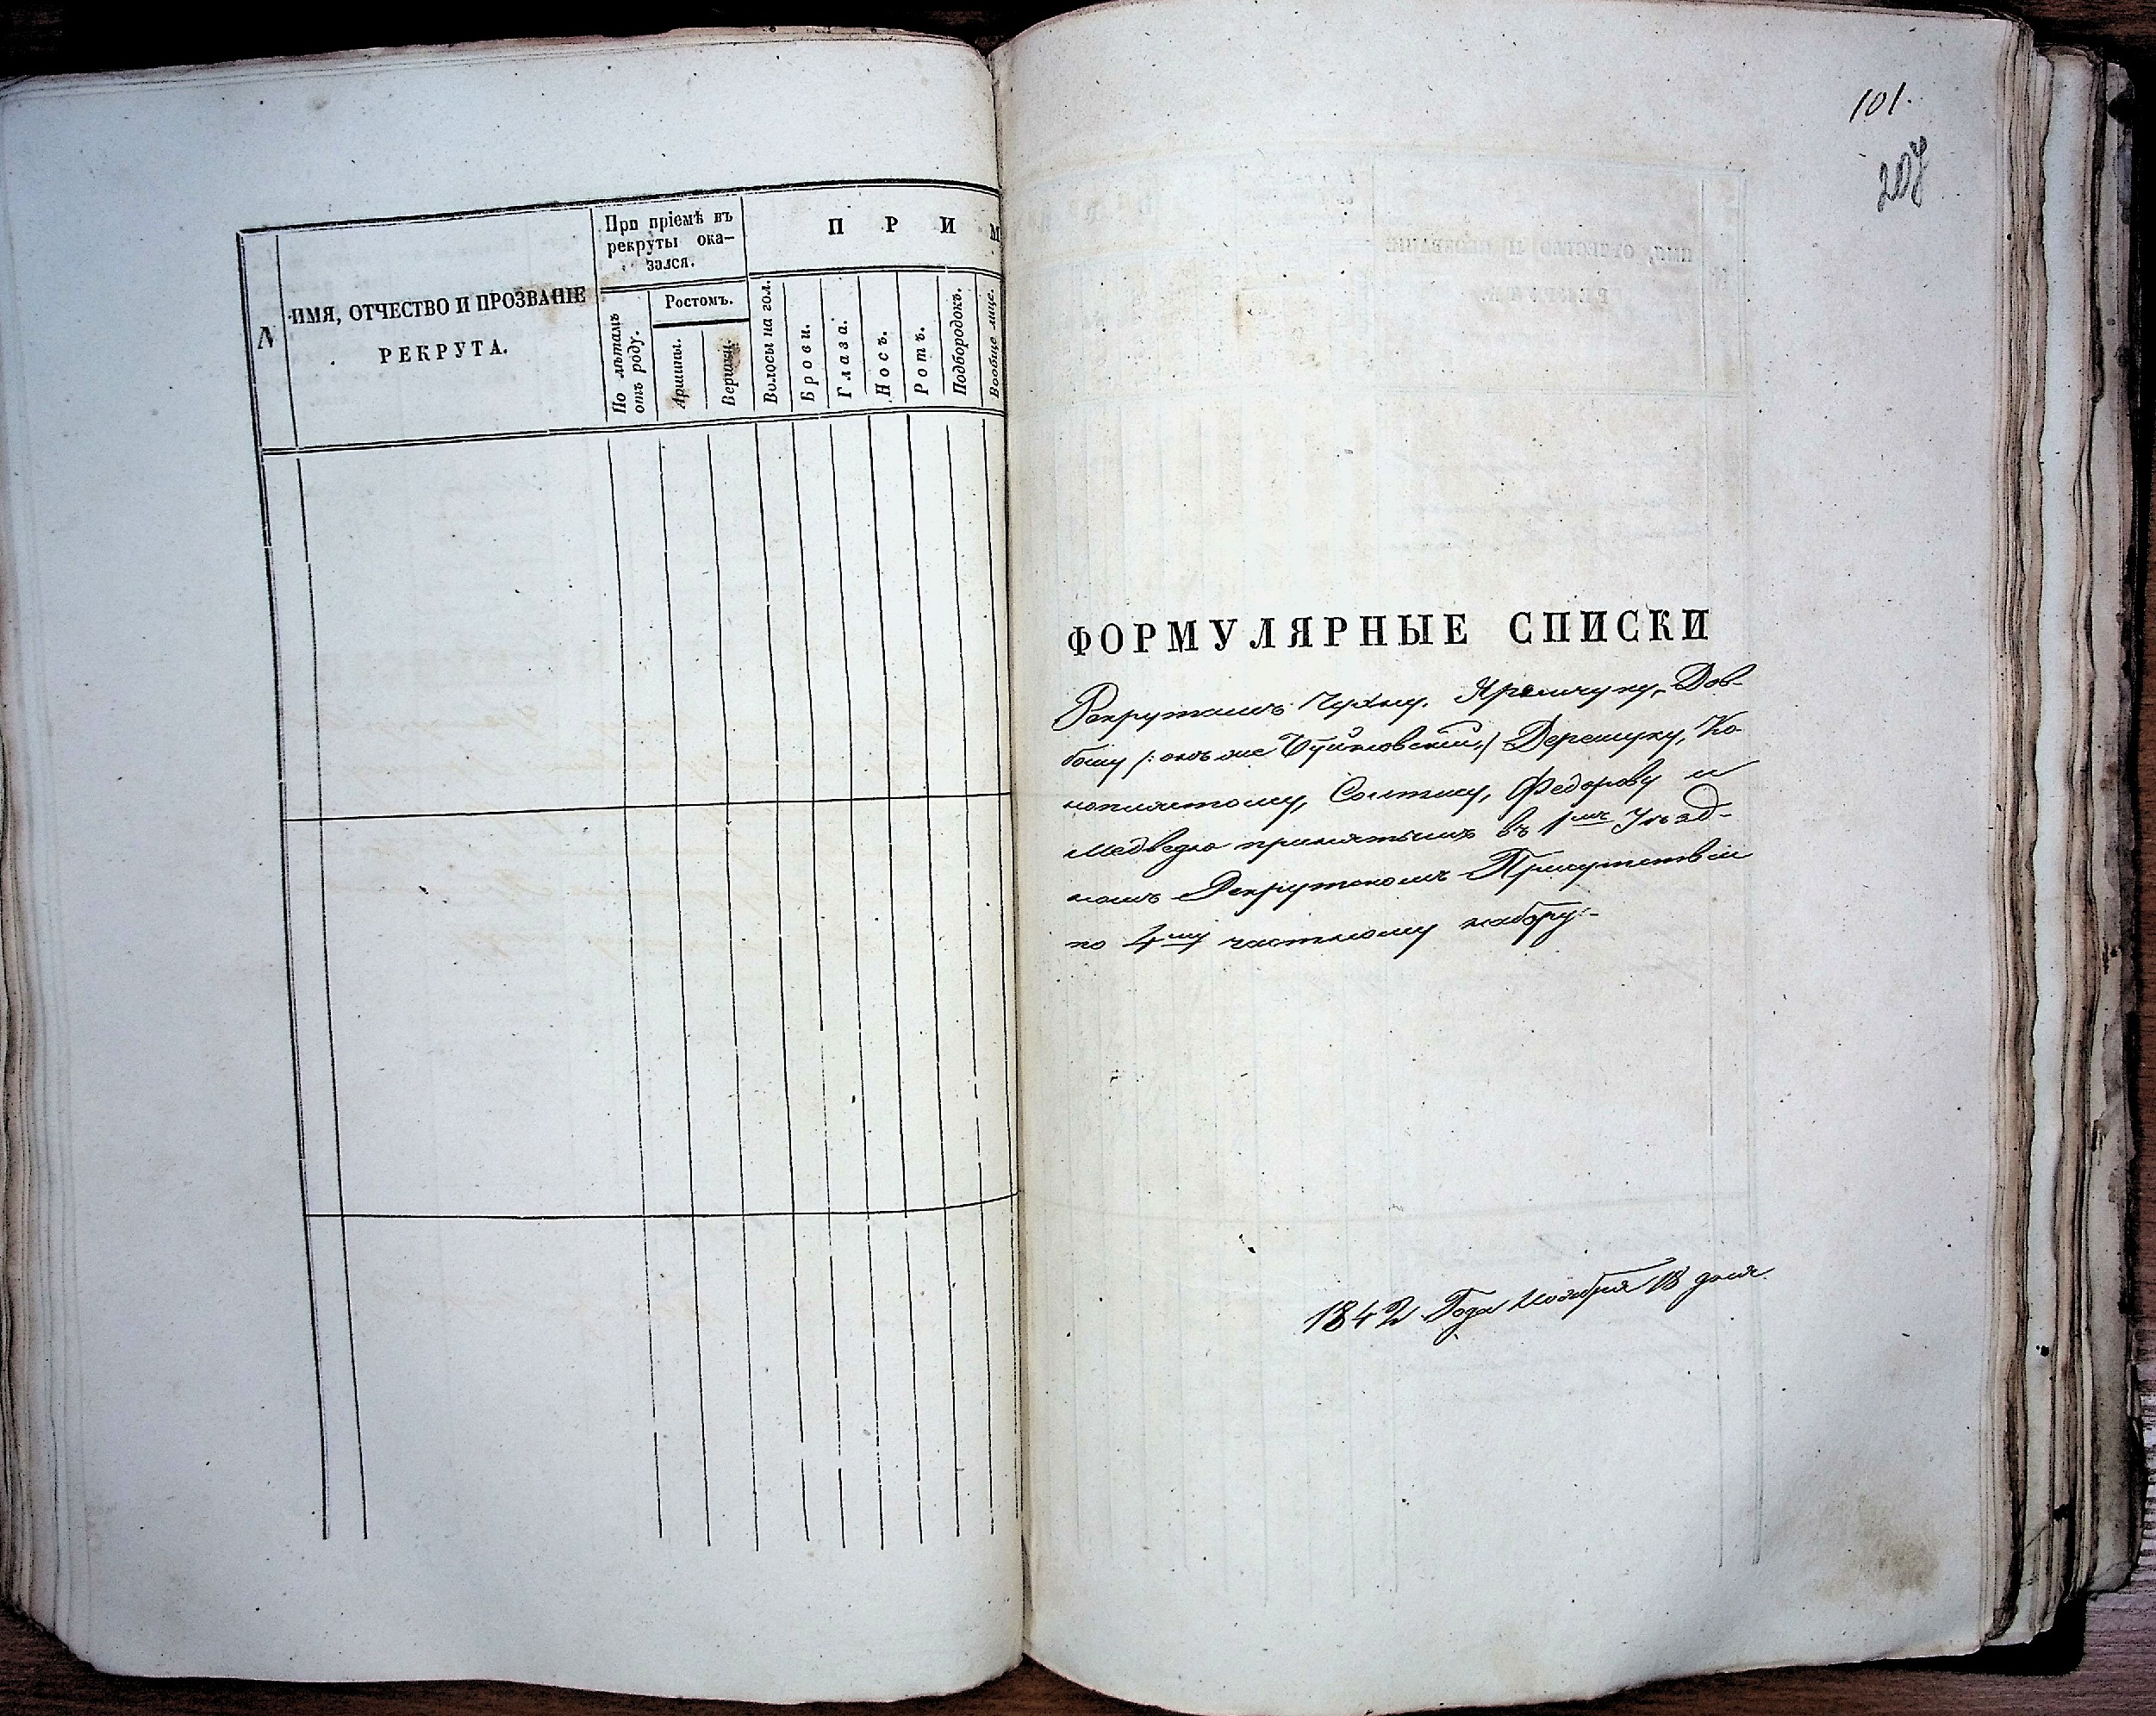 N
ИМЯ, ОТЧЕСТВО И ПРОЗВАНІЕ
РЕКРУТА.
При пріемѣ въ
рекруты ока-
зался.
По лѣтамъ
отъ роду.
Ростомъ.
Аршины.
Вершки.
П Р И М
Волосы на гол.
Брови.
Глаза.
Носъ.
Ротъ.
Подбородокъ.
Вообще лице.
101.
207
ФОРМУЛЯРНЫЕ СПИСКИ
Рекрутамъ Чухну, Яремчуку, Дов-
бошу /: онъ же Буйновскій:/ Дерешуку, Ко-
ноплястому, Солтысу, Федорову и
Медведю принятымъ въ 1мъ Уѣзд-
номъ Рекрутскомъ Присутствіи
по 4му частному набору:-
1842 Года Ноября 18 дня.